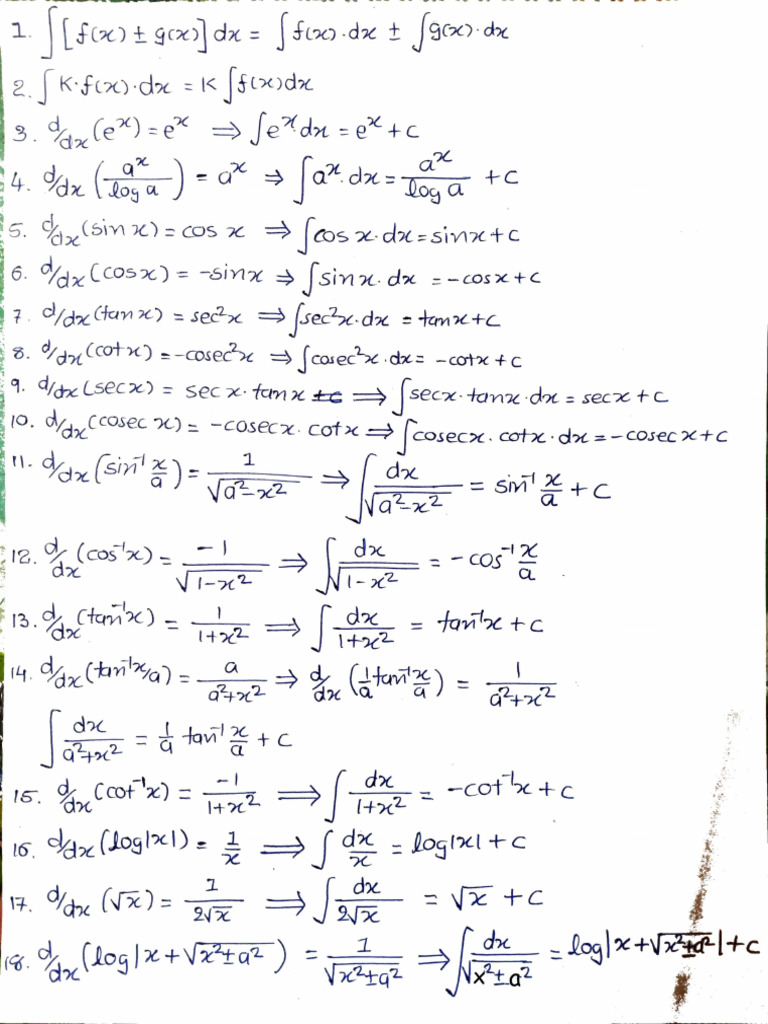 1. ∫[f(x) ± g(x)] dx = ∫f(x)·dx ± ∫g(x)·dx
2. ∫K·f(x)·dx = K ∫f(x)dx
3. d/dx (e^x) = e^x ⇒ ∫e^x dx = e^x + c
4. d/dx (a^x / log a) = a^x ⇒ ∫a^x·dx = a^x / log a + c
5. d/dx (sin x) = cos x ⇒ ∫cos x·dx = sinx + c
6. d/dx (cosx) = -sinx ⇒ ∫sinx·dx = -cosx + c
7. d/dx (tanx) = sec²x ⇒ ∫sec²x·dx = tanx + c
8. d/dx (cotx) = -cosec²x ⇒ ∫cosec²x·dx = -cotx + c
9. d/dx (secx) = secx·tanx ⇒ ∫secx·tanx·dx = secx + c
10. d/dx (cosec x) = -cosecx·cotx ⇒ ∫cosecx·cotx·dx = -cosecx + c
11. d/dx (sin⁻¹ x/a) = 1/√(a²-x²) ⇒ ∫dx/√(a²-x²) = sin⁻¹ x/a + c
12. d/dx (cos⁻¹x) = -1/√(1-x²) ⇒ ∫dx/√(1-x²) = -cos⁻¹ x/a
13. d/dx (tan⁻¹x) = 1/(1+x²) ⇒ ∫dx/(1+x²) = tan⁻¹x + c
14. d/dx (tan⁻¹x/a) = a/(a²+x²) ⇒ d/dx (1/a tan⁻¹ x/a) = 1/(a²+x²)
∫dx/(a²+x²) = 1/a tan⁻¹ x/a + c
15. d/dx (cot⁻¹x) = -1/(1+x²) ⇒ ∫dx/(1+x²) = -cot⁻¹x + c
16. d/dx (log|x|) = 1/x ⇒ ∫dx/x = log|x| + c
17. d/dx (√x) = 1/(2√x) ⇒ ∫dx/(2√x) = √x + c
18. d/dx (log|x + √(x²±a²)) = 1/√(x²±a²) ⇒ ∫dx/√(x²±a²) = log|x + √(x²±a²)| + c